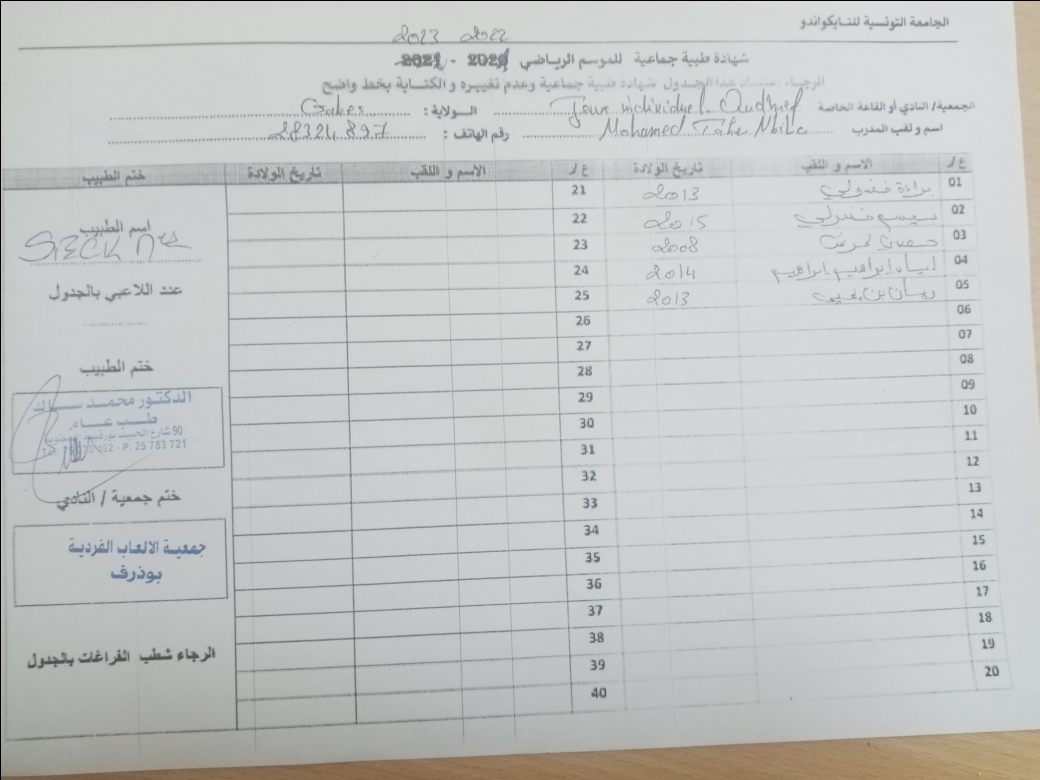 الجامعة التونسية للتايكواندو
2023 2022
شهادة طبية جماعية للموسم الرياضي 2020 - 2021
الرجاء اعتماد هذا الجدول شهادة طبية جماعية وعدم تغييره و الكتابة بخط واضح
الجمعية/ النادي أو القاعة الخاصة Jeux individuel Oudhref الولاية : Gabes
اسم و لقب المدرب Mohamed رقم الهاتف : 28324897
ع/ر الاسم و اللقب تاريخ الولادة ع/ر الاسم و اللقب تاريخ الولادة ختم الطبيب
01 2013 21
02 2015 22
03 2008 23
04 ابراهيم ابراهيم 2014 24
05 بن يحيى 2013 25
06 26
07 27
08 28
09 29
10 30
11 31
12 32
13 33
14 34
15 35
16 36
17 37
18 38
19 39
20 40
اسم الطبيب
SIECK
عدد اللاعبي بالجدول
ختم الطبيب
الدكتور محمد ساك
طب عام
90 شارع الحبيب
P: 25 783 721
ختم جمعية / النادي
جمعية الالعاب الفردية
بوذرف
الرجاء شطب الفراغات بالجدول